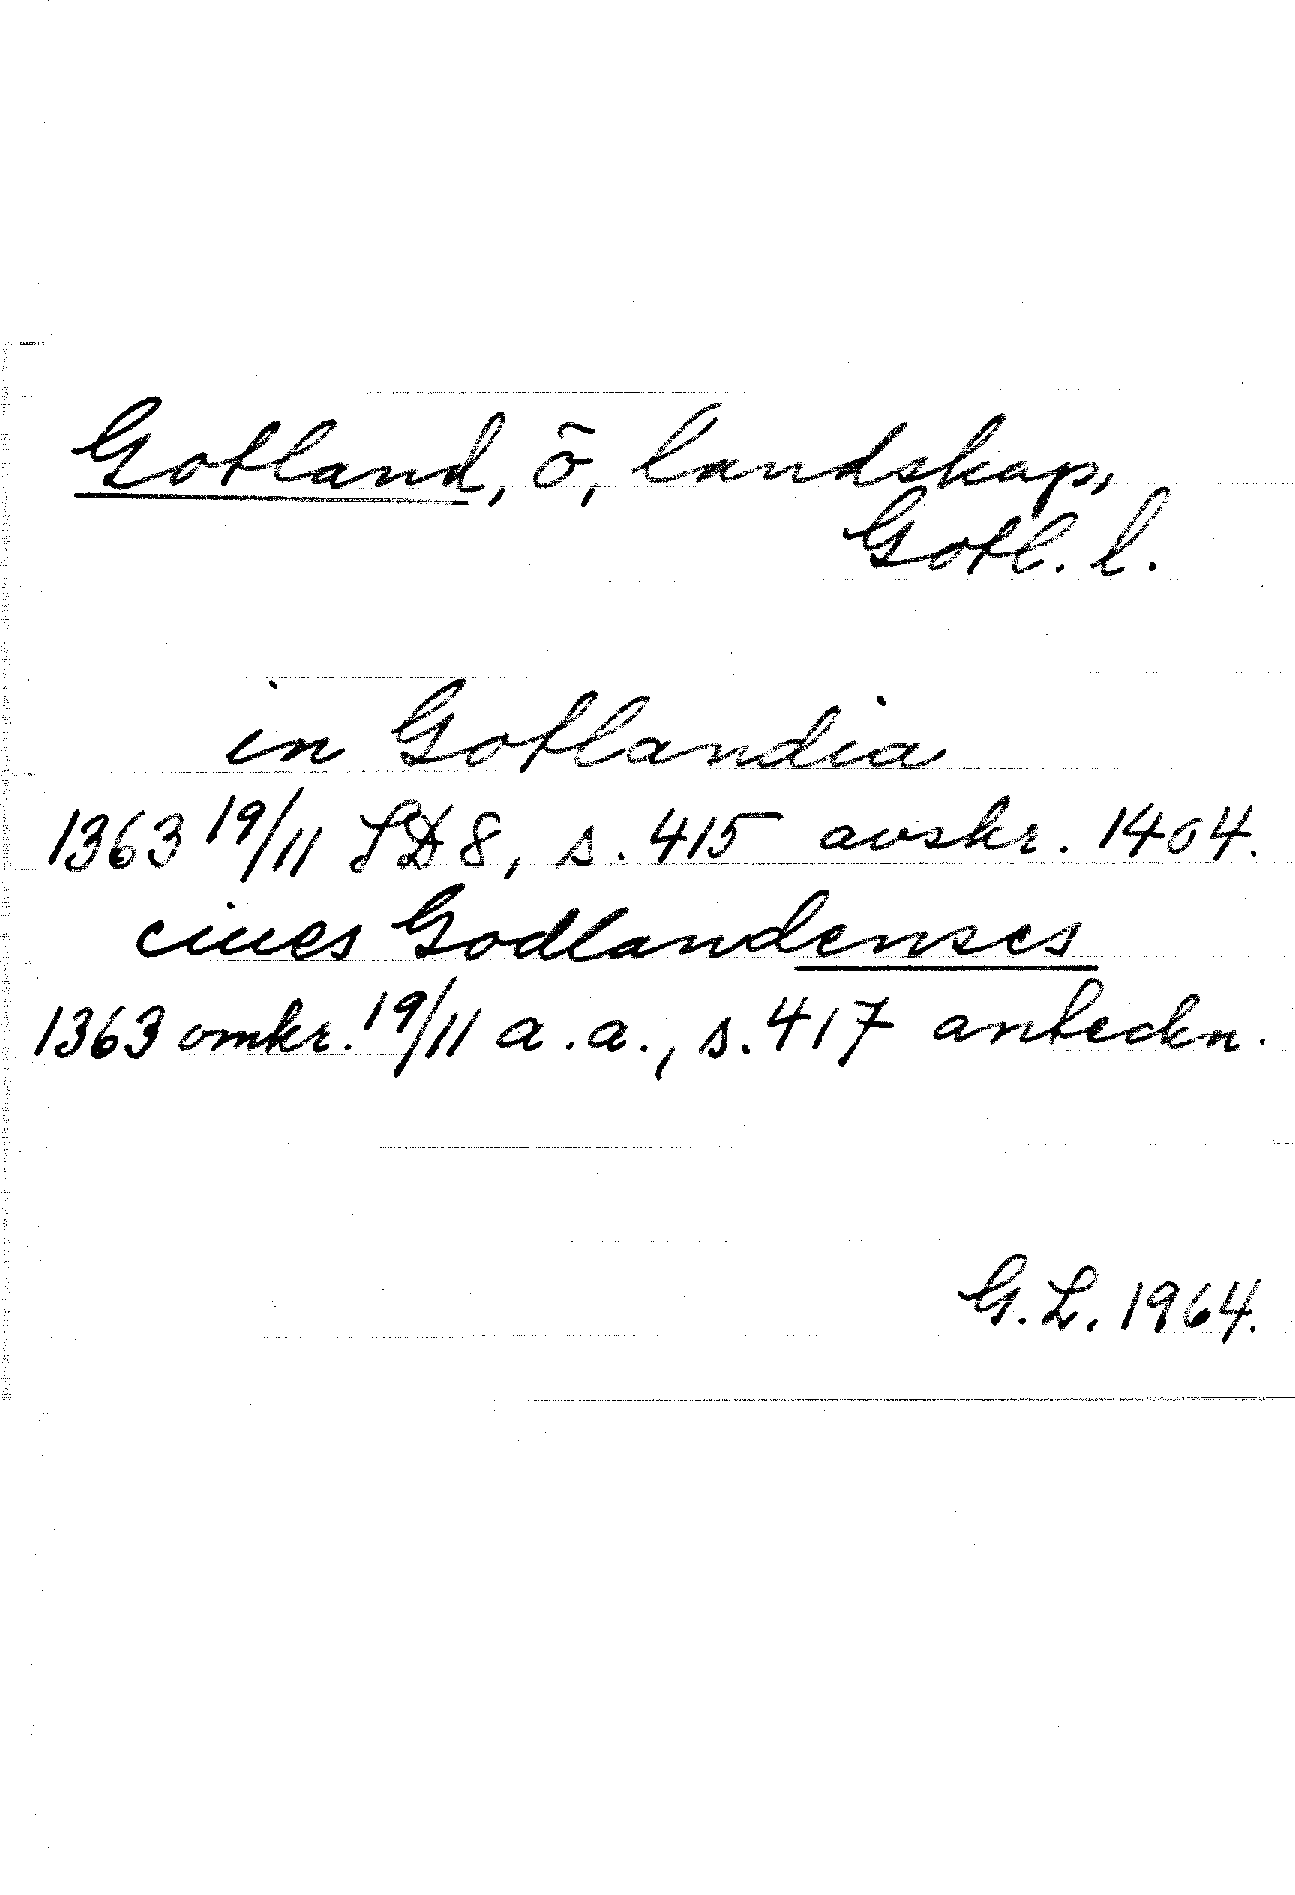 Gotland, ö, landskap,
Gotl. l.
in Gotlandia
1363 19/11 SD 8, s. 415 avskr. 1404.
ciues Godlandenses
1363 omkr. 19/11 a.a., s. 417 anteckn.
G. L. 1964.